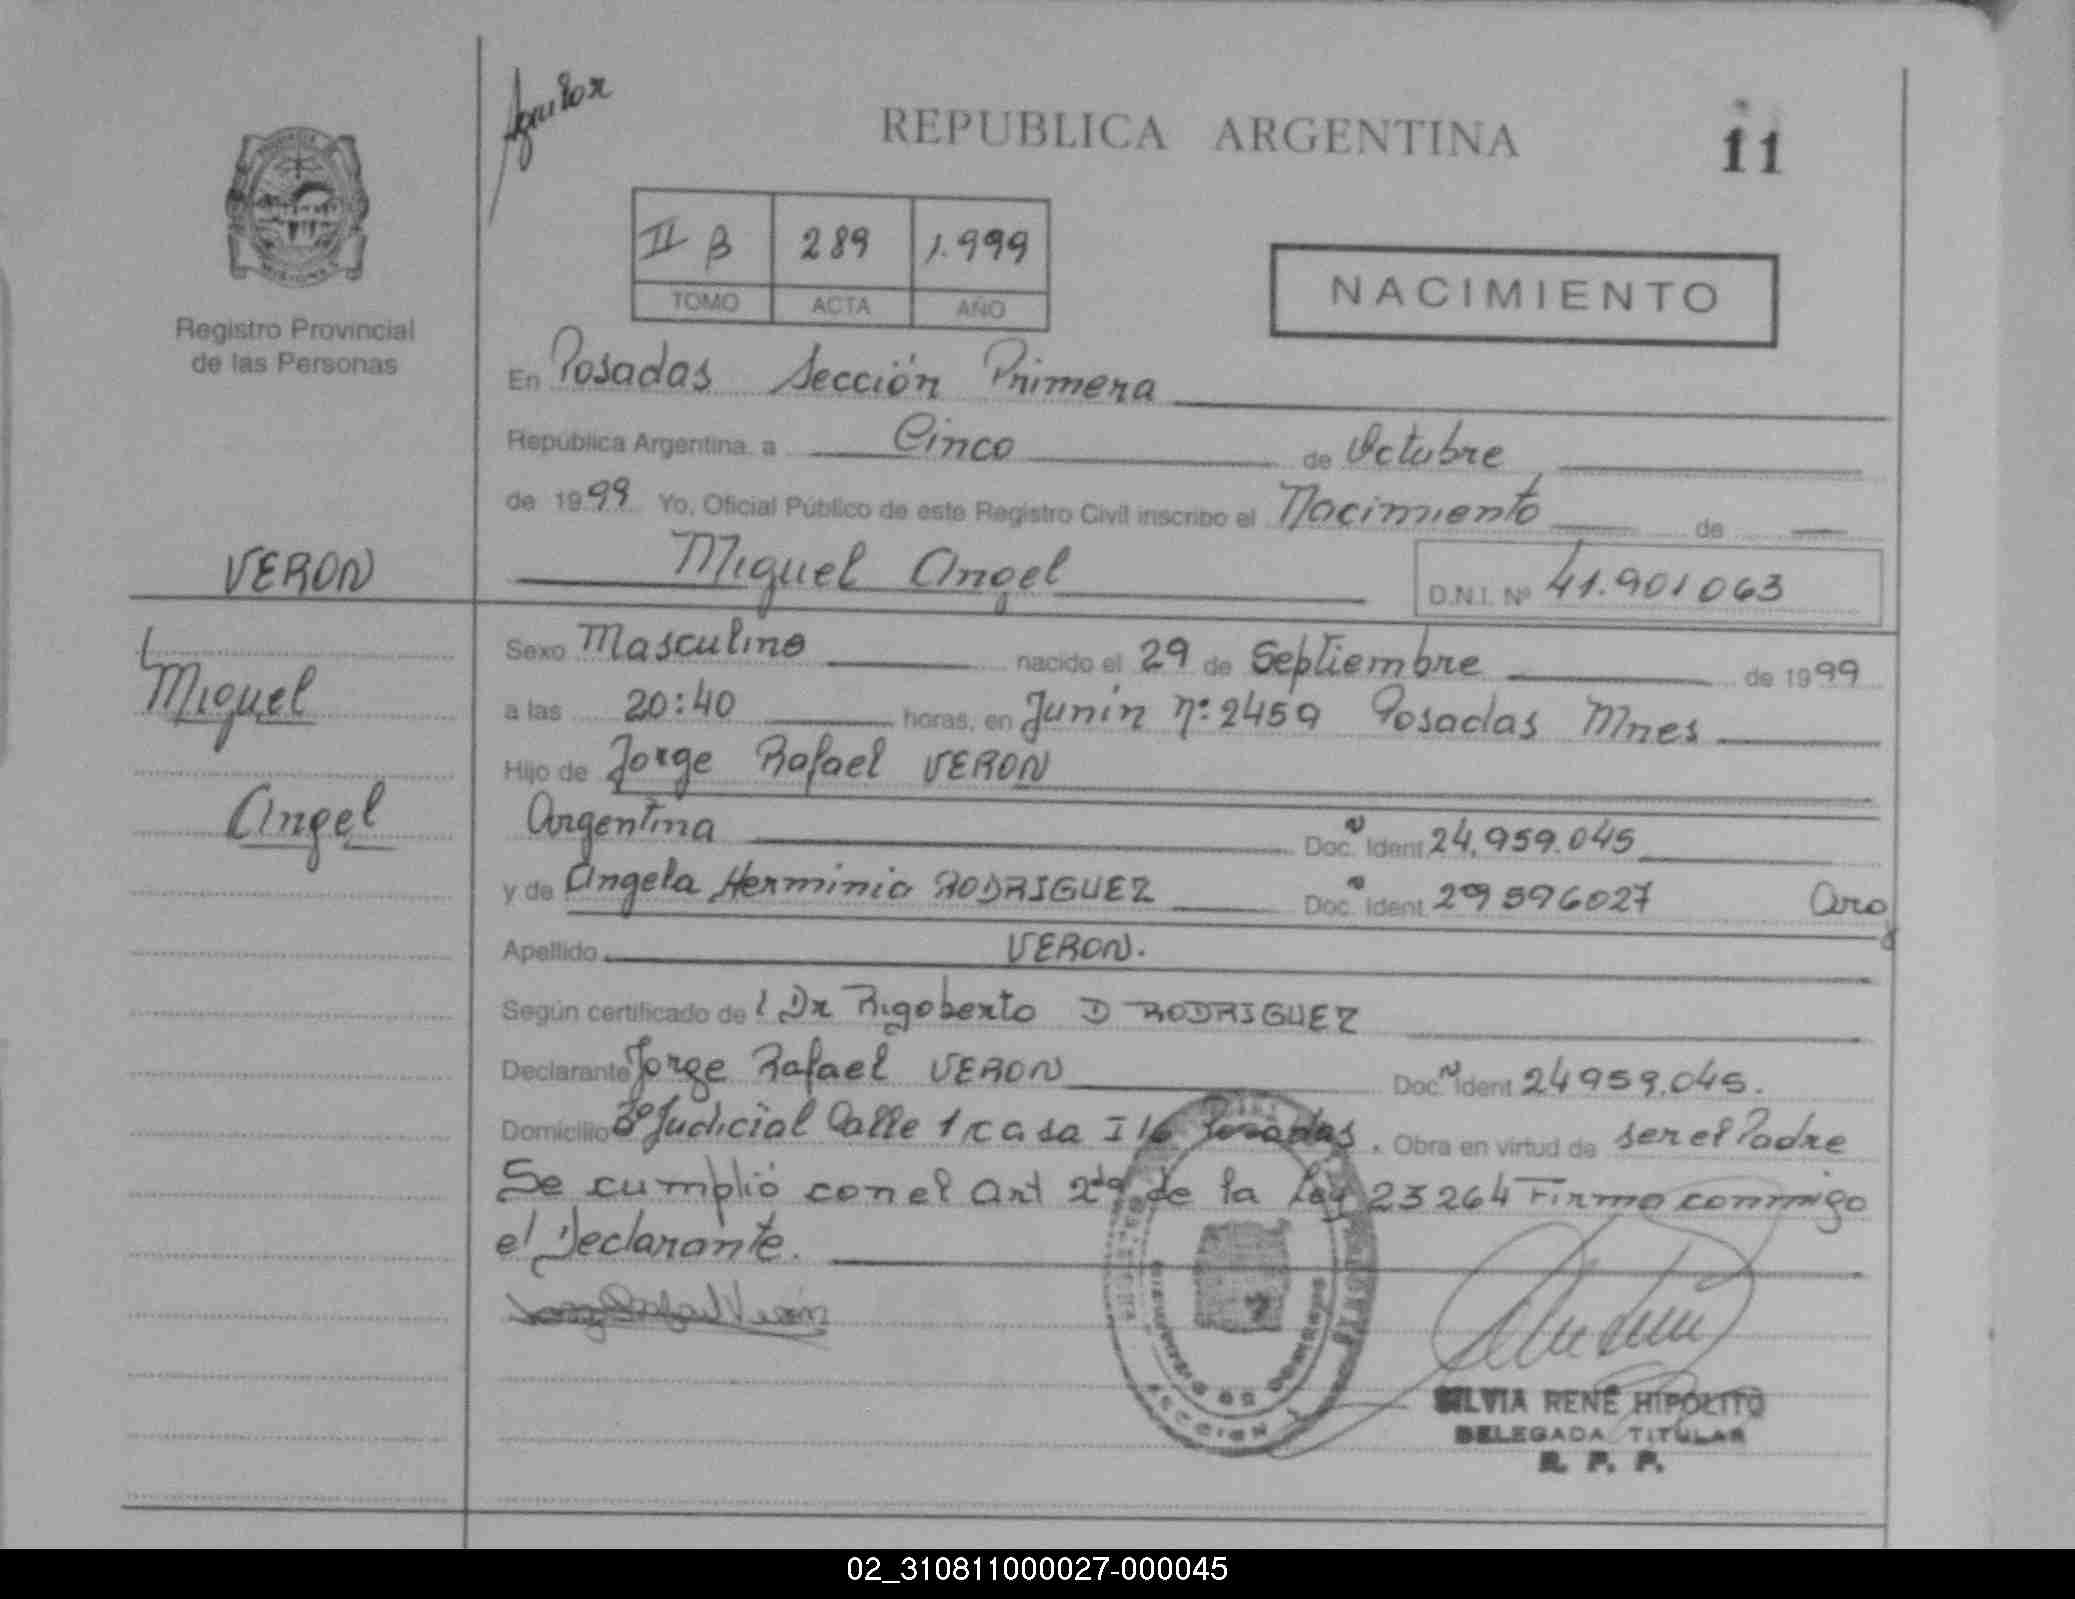 Aguilar
REPUBLICA ARGENTINA
11
II B 289 1.999
TOMO ACTA AÑO
NACIMIENTO
Registro Provincial
de las Personas
En Posadas Sección Primera
República Argentina, a Cinco de Octubre
de 1999 Yo, Oficial Público de este Registro Civil inscribo el Nacimiento de
VERON
Miguel Angel
D.N.I. Nº 41.901063
Miguel
Angel
Sexo Masculino nacido el 29 de Septiembre de 1999
a las 20:40 horas, en Junín nº 2459 Posadas Mnes
Hijo de Jorge Rafael VERON
Argentina Doc. Ident 24.959.045
y de Angela Herminia RODRIGUEZ Doc. Ident 29596027 Arg
Apellido VERON.
Según certificado de l Dr Rigoberto D RODRIGUEZ
Declarante Jorge Rafael VERON Doc. Ident 24959.045.
Domicilio Bº Judicial Calle 1 casa I 16 Posadas. Obra en virtud de ser el Padre
Se cumplió con el Art 2do de la Ley 23264 Firma conmigo
el Declarante.
Jorge Rafael Veron
SECCION 1
SILVIA RENÉ HIPOLITO
DELEGADA TITULAR
R. P. P.
02_310811000027-000045